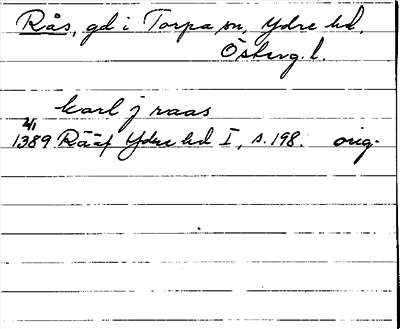 Rås, gd i Torpa sn, Ydre hd,
Östergl.
karl j raas
2/1
1389 Rääf Ydre hd I, s. 198. orig.